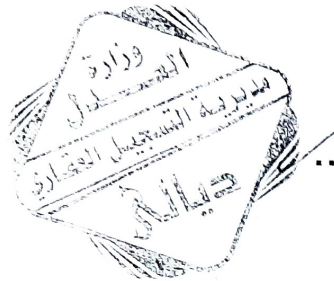 وزارة
العدل
مديرية التسجيل العقاري
ديالى